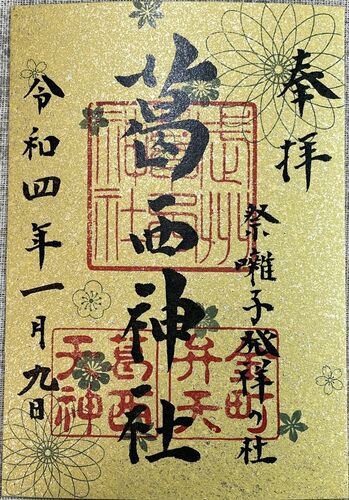 奉拝
祭囃子発祥の社
葛西神社
令和四年一月九日
金町
弁天
葛西
天神